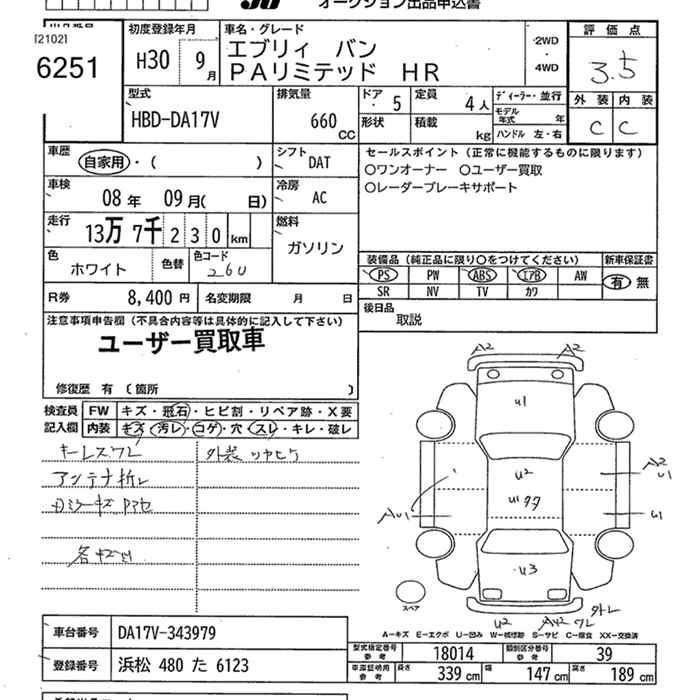 オークション出品申込書
[2102]
6251
初度登録年月
H30 9月
車名・グレード
エブリィ バン
PAリミテッド HR
2WD
4WD
評価点
3.5
外装 内装
C C
型式
HBD-DA17V
排気量
660 cc
ドア 5
定員 4人
ディーラー・並行
モデル年式 年
形状
積載 kg
ハンドル 左・右
車歴
自家用・( )
シフト DAT
セールスポイント(正常に機能するものに限ります)
○ワンオーナー ○ユーザー買取
○レーダーブレーキサポート
車検
08年 09月( 日)
冷房 AC
走行
13万 7千 2 3 0 km
燃料
ガソリン
色 ホワイト
色替
色コード 26U
装備品(純正品に限り○をつけてください)
新車保証書
PS PW ABS エアB AW
有 無
SR NV TV カワ
R券 8,400円
名変期限 月 日
後日品
取説
注意事項申告欄(不具合内容等は具体的に記入して下さい)
ユーザー買取車
修復歴 有 〔箇所 〕
検査員記入欄
FW キズ・飛石・ヒビ割・リペア跡・X要
内装 キズ・汚レ・コゲ・穴・スレ・キレ・破レ
キーレスワレ
外装 リヤヒケ
アンテナ折レ
A2 A2
U1
U2
A2
U1
U1
AU1
U3
スペア
U2
A-キズ E-エクボ U-凹み W-補修跡 S-サビ C-腐食 XX-交換済
車台番号 DA17V-343979
登録番号 浜松 480 た 6123
型式指定番号 参考 18014
類別区分番号 参考 39
車庫証明用 参考 長さ 339 cm 幅 147 cm 高さ 189 cm